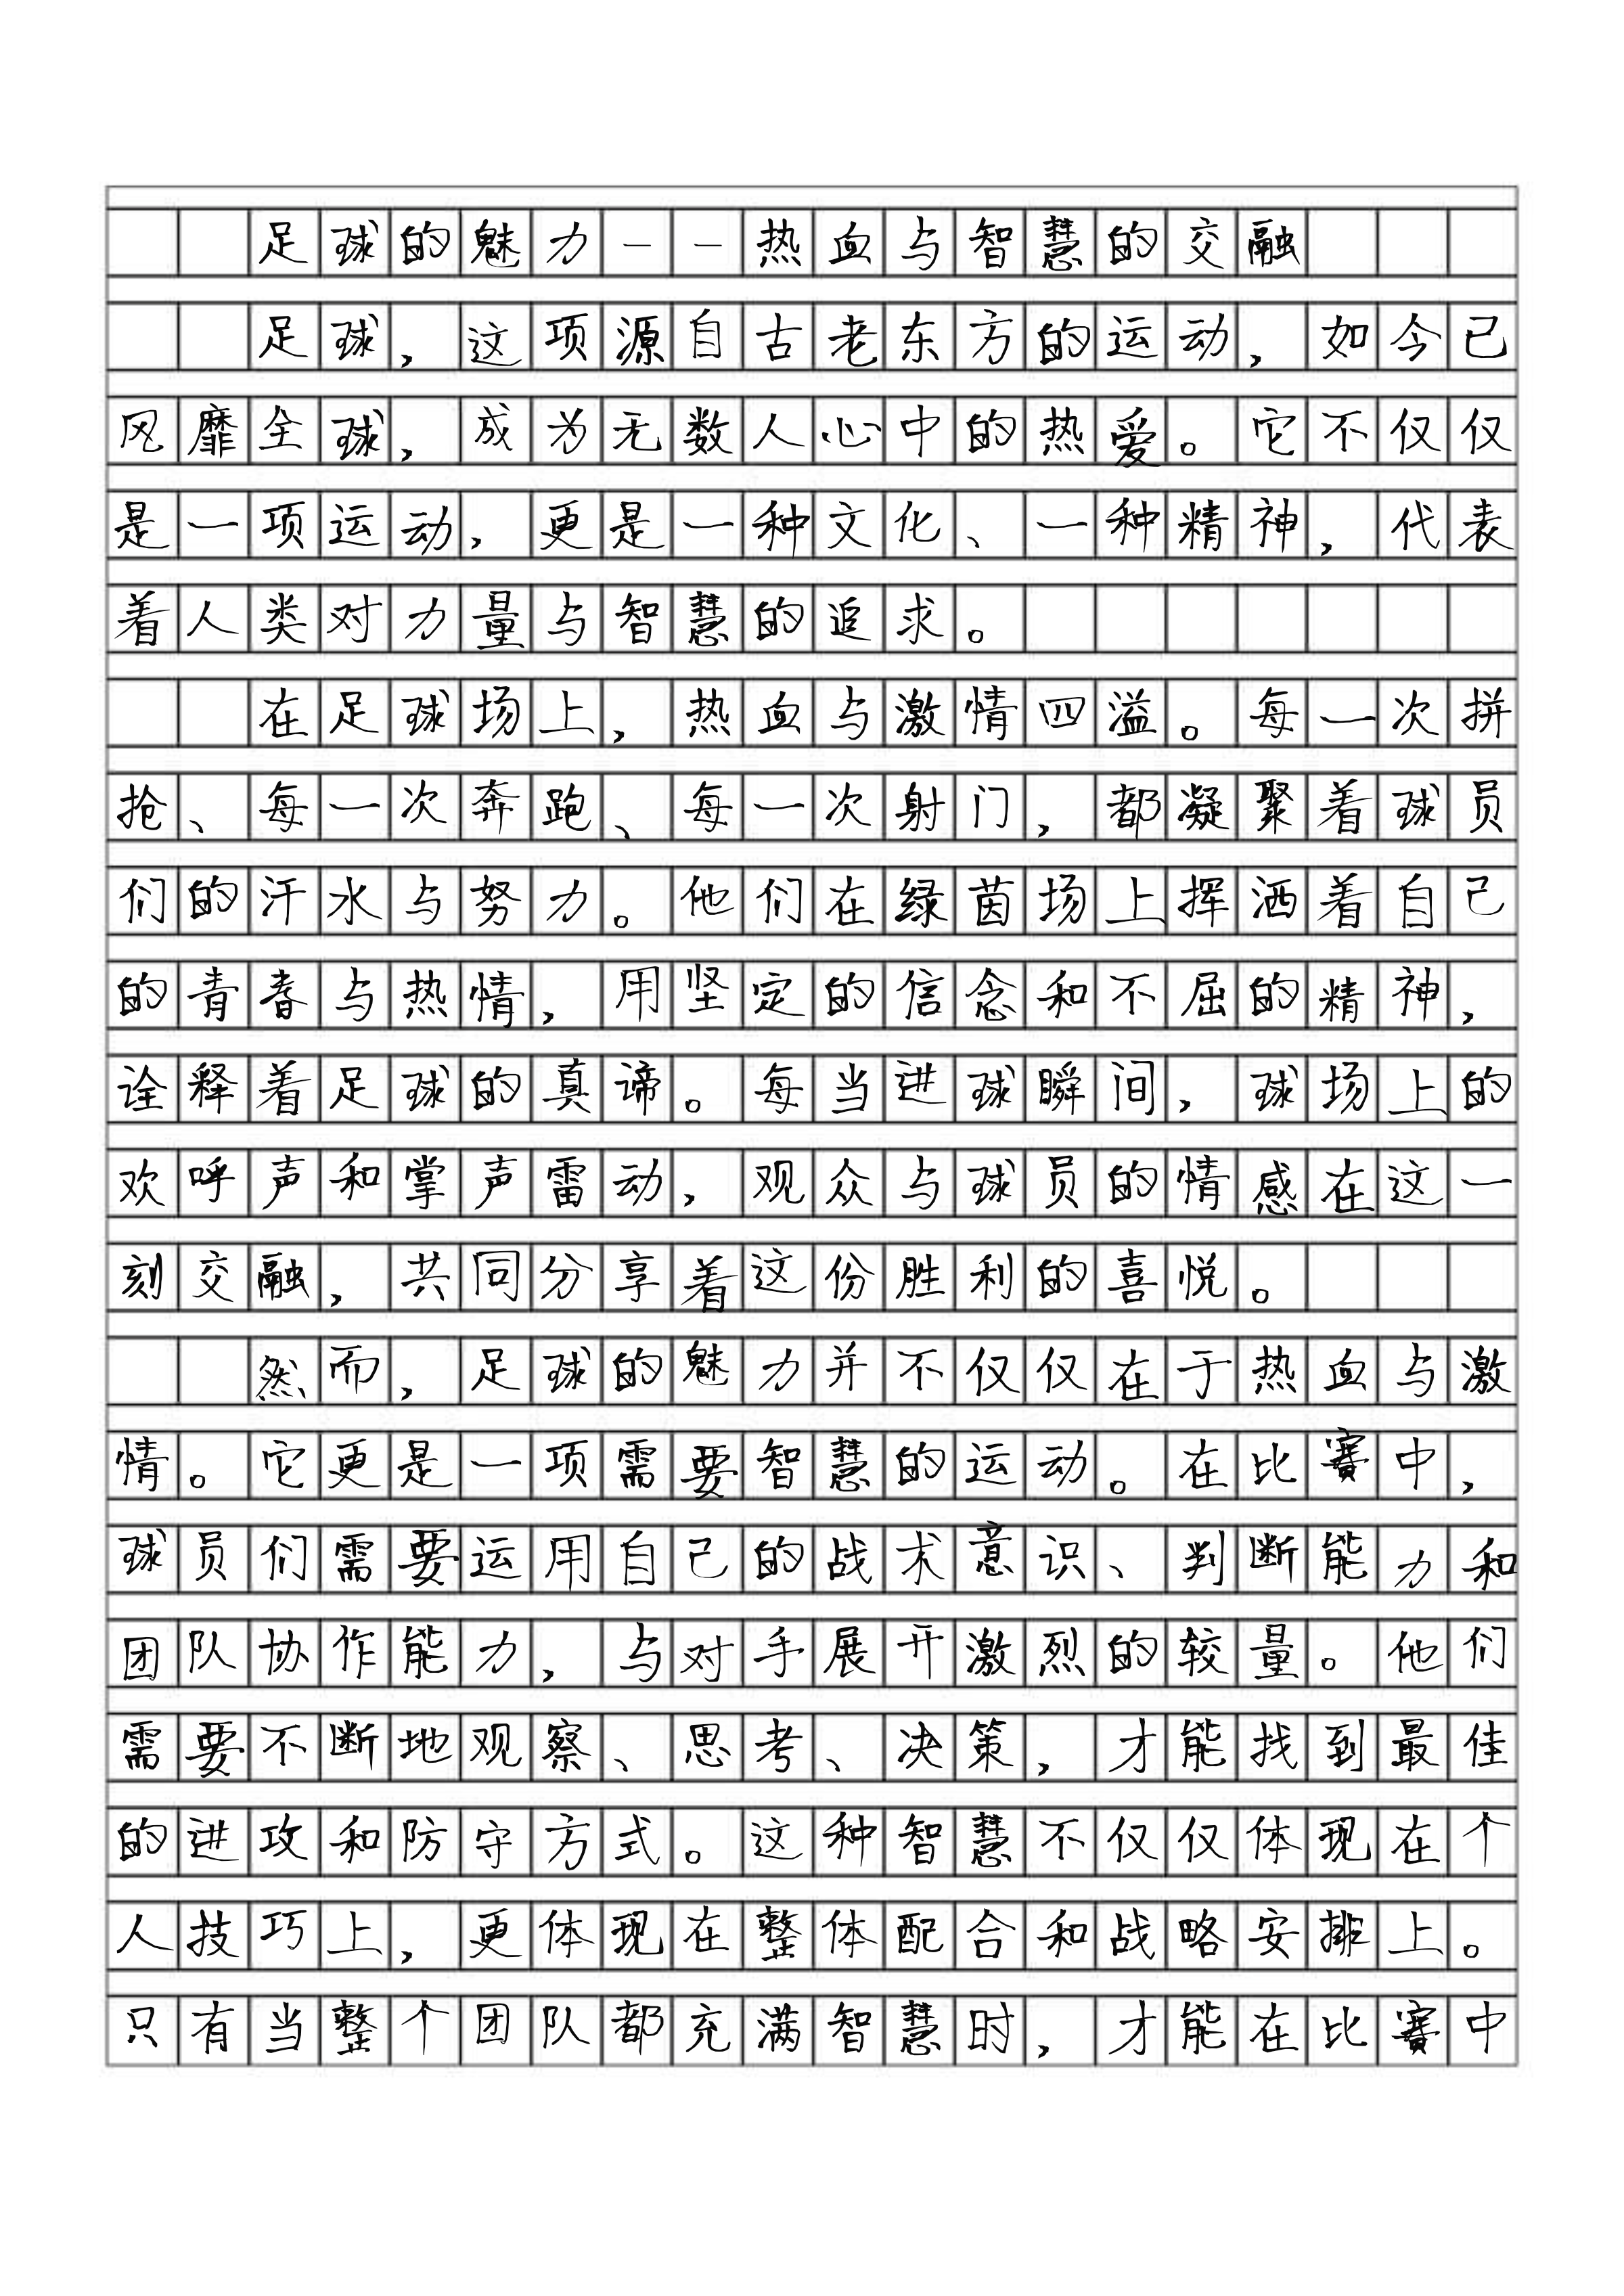 足球的魅力--热血与智慧的交融
足球，这项源自古老东方的运动，如今已
风靡全球，成为无数人心中的热爱。它不仅仅
是一项运动，更是一种文化、一种精神，代表
着人类对力量与智慧的追求。
在足球场上，热血与激情四溢。每一次拼
抢、每一次奔跑、每一次射门，都凝聚着球员
们的汗水与努力。他们在绿茵场上挥洒着自己
的青春与热情，用坚定的信念和不屈的精神，
诠释着足球的真谛。每当进球瞬间，球场上的
欢呼声和掌声雷动，观众与球员的情感在这一
刻交融，共同分享着这份胜利的喜悦。
然而，足球的魅力并不仅仅在于热血与激
情。它更是一项需要智慧的运动。在比赛中，
球员们需要运用自己的战术意识、判断能力和
团队协作能力，与对手展开激烈的较量。他们
需要不断地观察、思考、决策，才能找到最佳
的进攻和防守方式。这种智慧不仅仅体现在个
人技巧上，更体现在整体配合和战略安排上。
只有当整个团队都充满智慧时，才能在比赛中